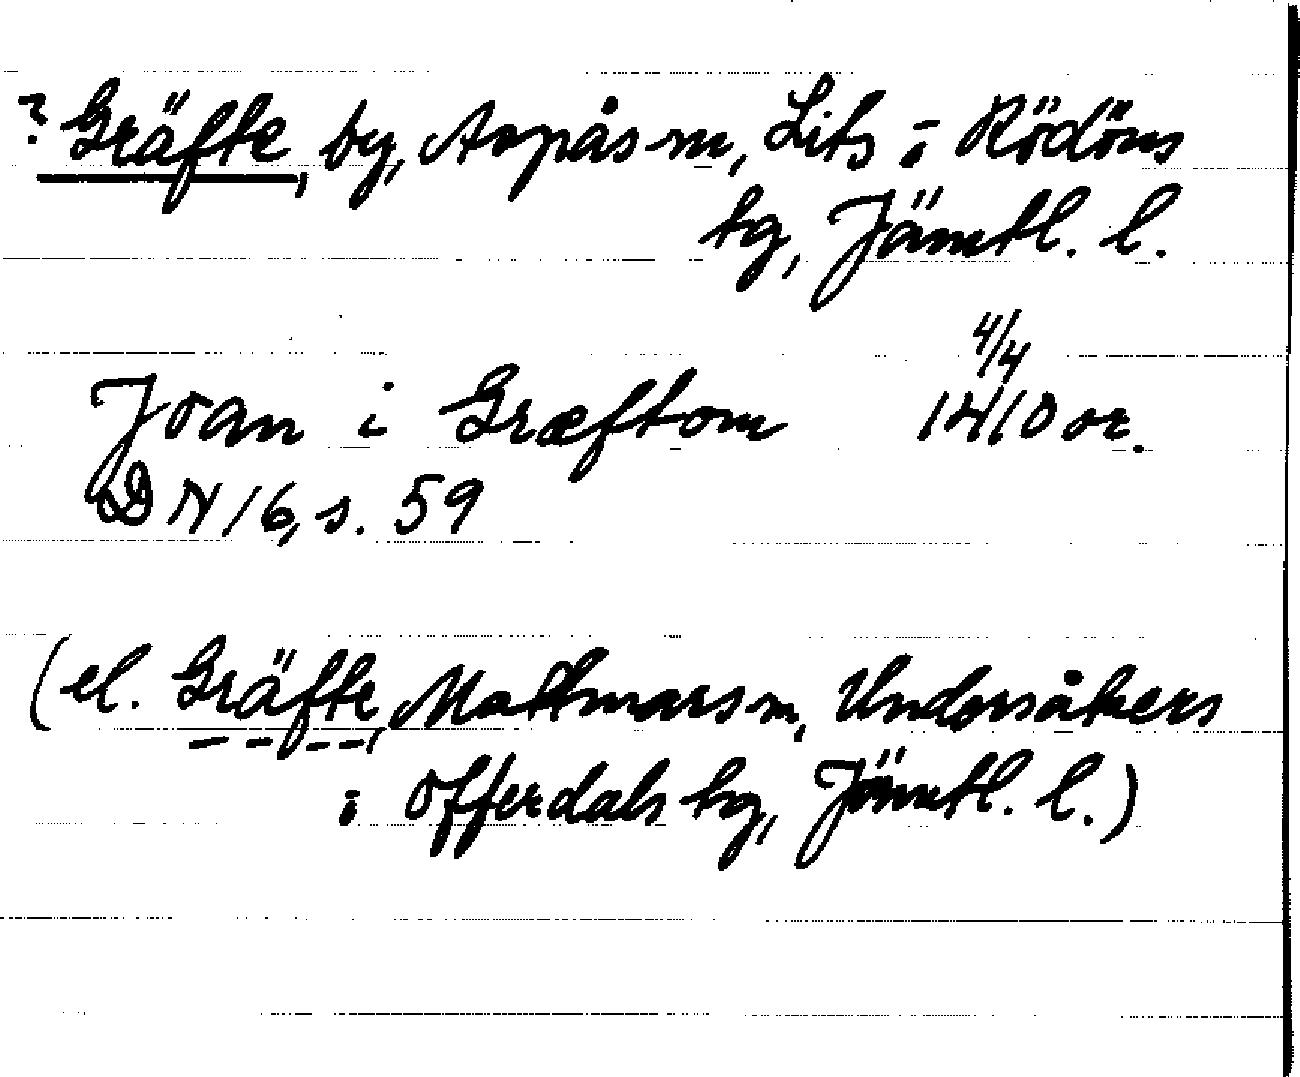 ? Gräfte, by, Aspås sn, Lits o Rödöns
tg, Jämtl. l.
Joan i Græftom 4/4 1410 or.
DN 16, s. 59
(el. Gräfte, Mattmars sn, Undersåkers
o Offerdals tg, Jämtl. l.)